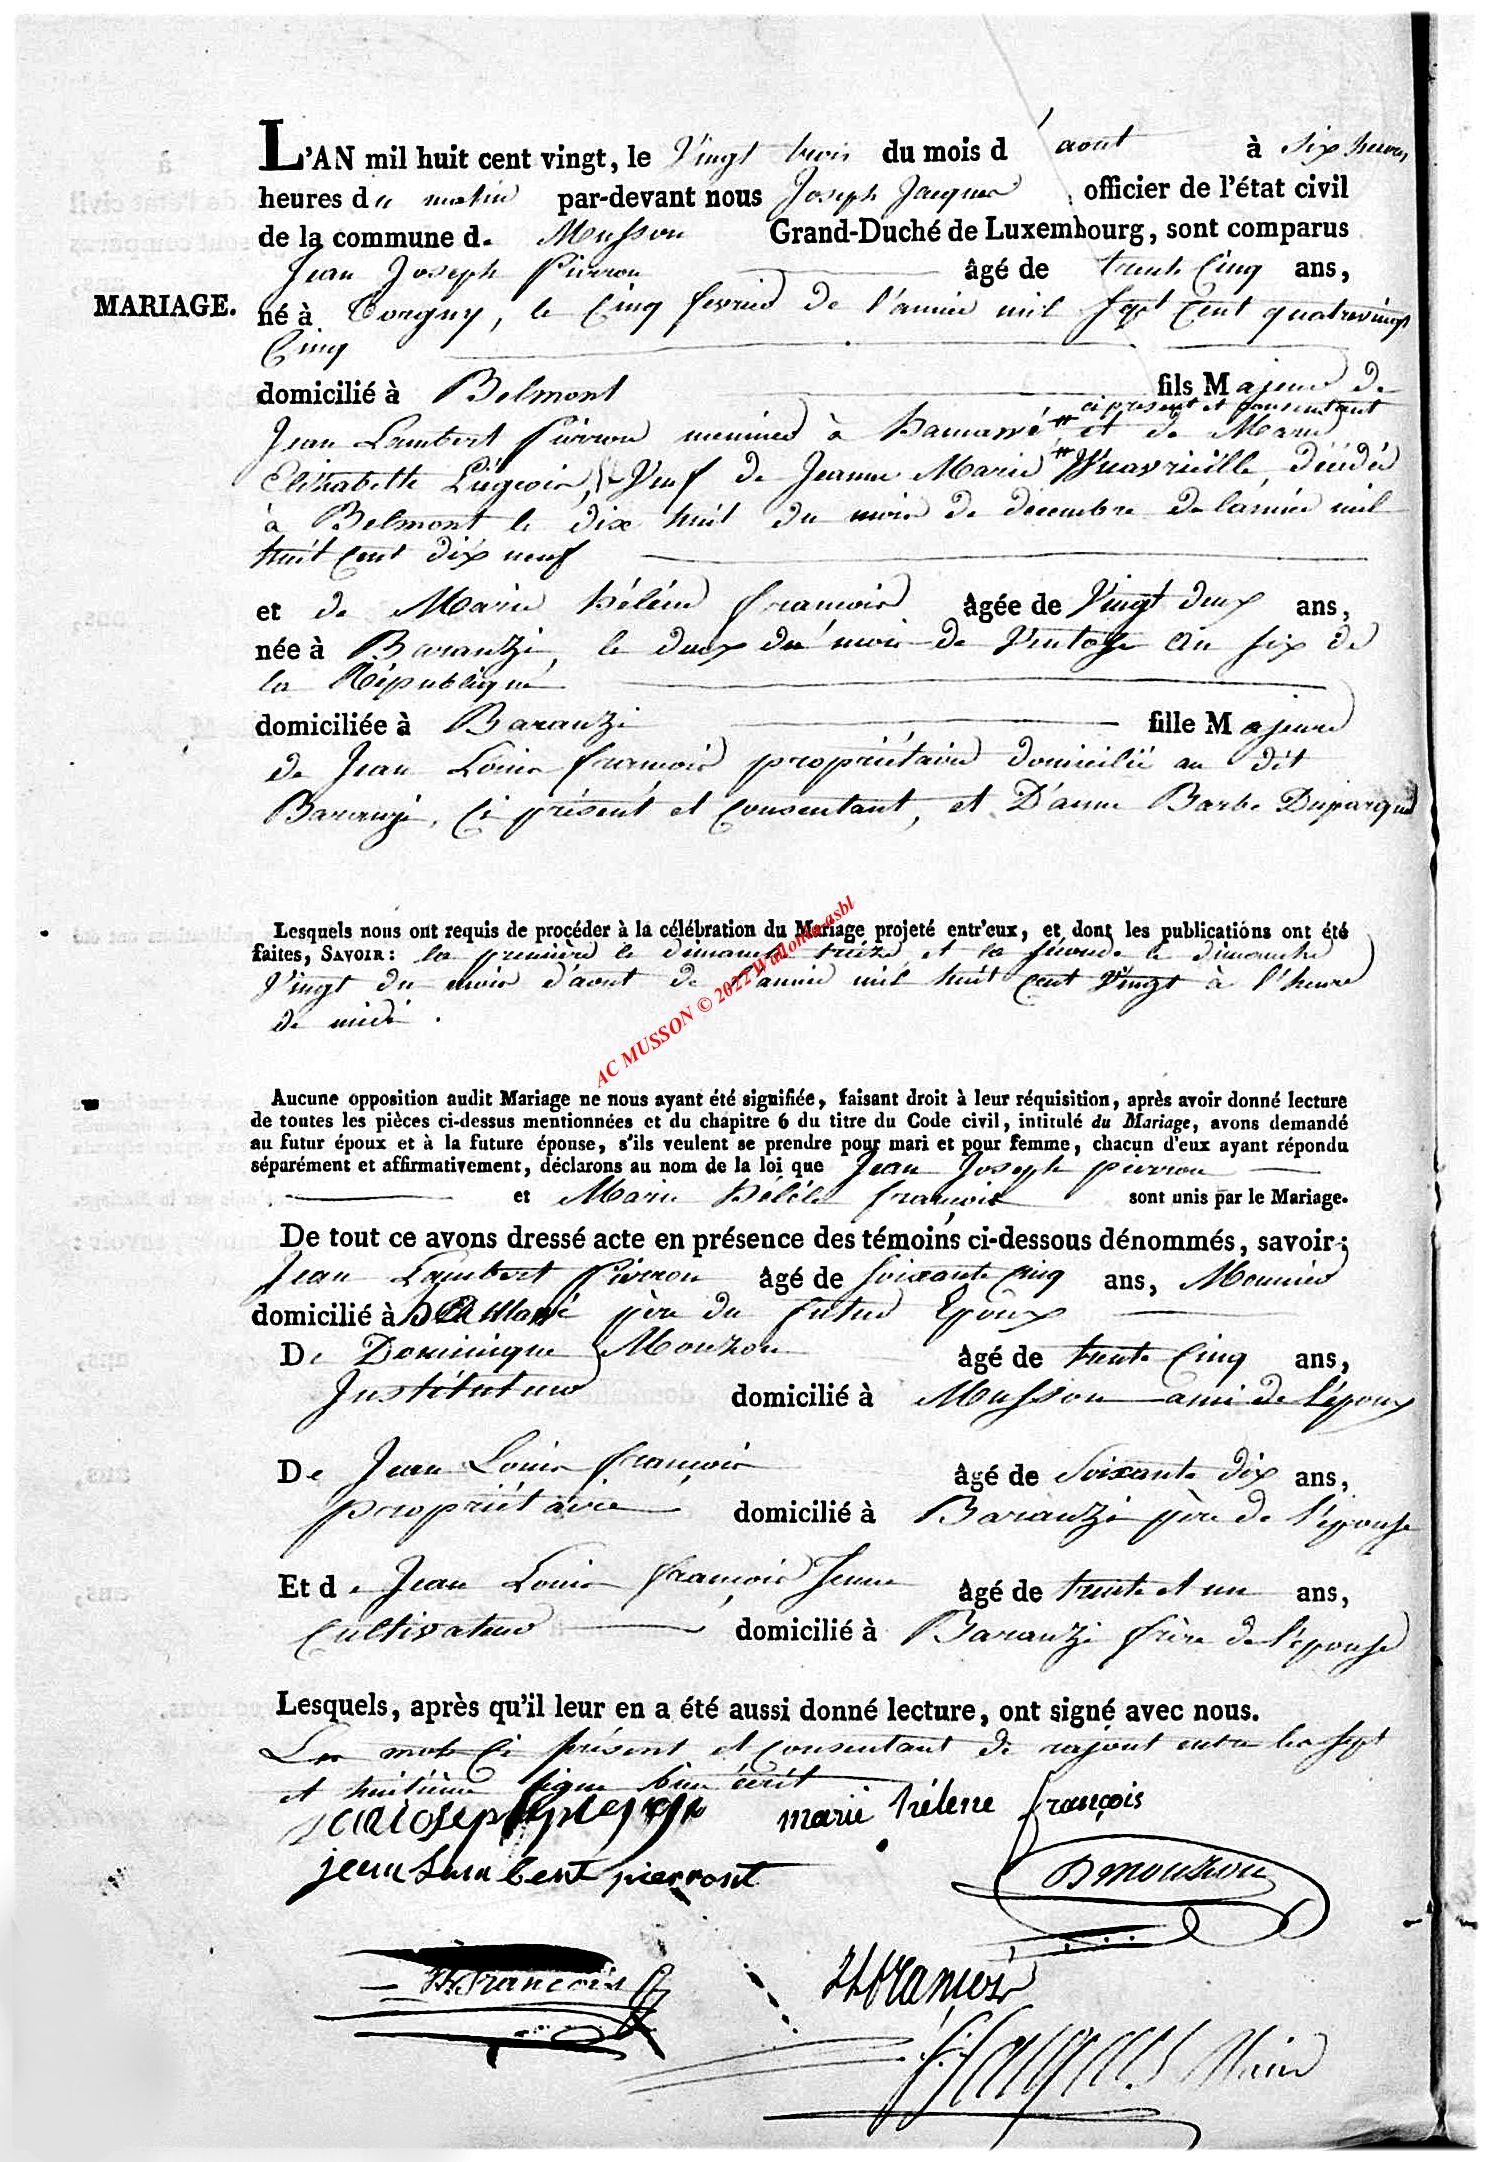 L'AN mil huit cent vingt, le Vingt trois du mois d'aout à six heures
heures du matin par-devant nous Joseph Jacques officier de l'état civil
de la commune de Musson Grand-Duché de Luxembourg, sont comparus
Jean Joseph Pierron âgé de trente Cinq ans,
MARIAGE.
né à Torgny, le Cinq fevrier de l'année mil sept Cent quatrevingt
Cinq
domicilié à Belmont fils Majeur de
ci present et consentant
Jean Lambert Pierron meunier à hamawé # et de Marie
Elizabette Liégeois, Veuf de Jeanne Marie décédée
à Belmont le dix huit du mois de decembre de l'année mil
huit Cent dix neuf
et de Marie hélène françois âgée de Vingt deux ans,
née à Baranzi, le deux du mois de Ventose an six de
la République
domiciliée à Baranzi fille Majeure
de Jean Louis françois propriétaire domicilié au dit
Baranzi, Ci présent et Consentant, et D'anne Barbe Duparque
Lesquels nous ont requis de procéder à la célébration du Mariage projeté entr'eux, et dont les publications ont été
faites, SAVOIR: la première le dimanche treize et la séconde le dimanche
Vingt du mois d'aout de l'année mil huit Cent Vingt à l'heure
de midi.
AC MUSSON © 2022 Wallonia asbl
Aucune opposition audit Mariage ne nous ayant été signifiée, faisant droit à leur réquisition, après avoir donné lecture
de toutes les pièces ci-dessus mentionnées et du chapitre 6 du titre du Code civil, intitulé du Mariage, avons demandé
au futur époux et à la future épouse, s'ils veulent se prendre pour mari et pour femme, chacun d'eux ayant répondu
séparément et affirmativement, déclarons au nom de la loi que Jean Joseph pierron
et Marie hélène françois sont unis par le Mariage.
De tout ce avons dressé acte en présence des témoins ci-dessous dénommés, savoir:
Jean Lambert Pierron âgé de Soixante Cinq ans, Meunier
domicilié à père du futur Epoux
De Dominique Mouzon âgé de trente Cinq ans,
Instituteur domicilié à Musson ami de l'époux
De Jean Louis françois âgé de Soixante dix ans,
propriétaire domicilié à Baranzi père de l'épouse
Et de Jean Louis françois Jeune âgé de trente et un ans,
Cultivateur domicilié à Baranzi frère de l'épouse
Lesquels, après qu'il leur en a été aussi donné lecture, ont signé avec nous.
Les mots Ci présent et Consentant de rajout entre les sept
et huitième ligne bien écrit
marie hélene françois
jean Lambert pierront
D mouzon
françois
françois
Jacques Maire